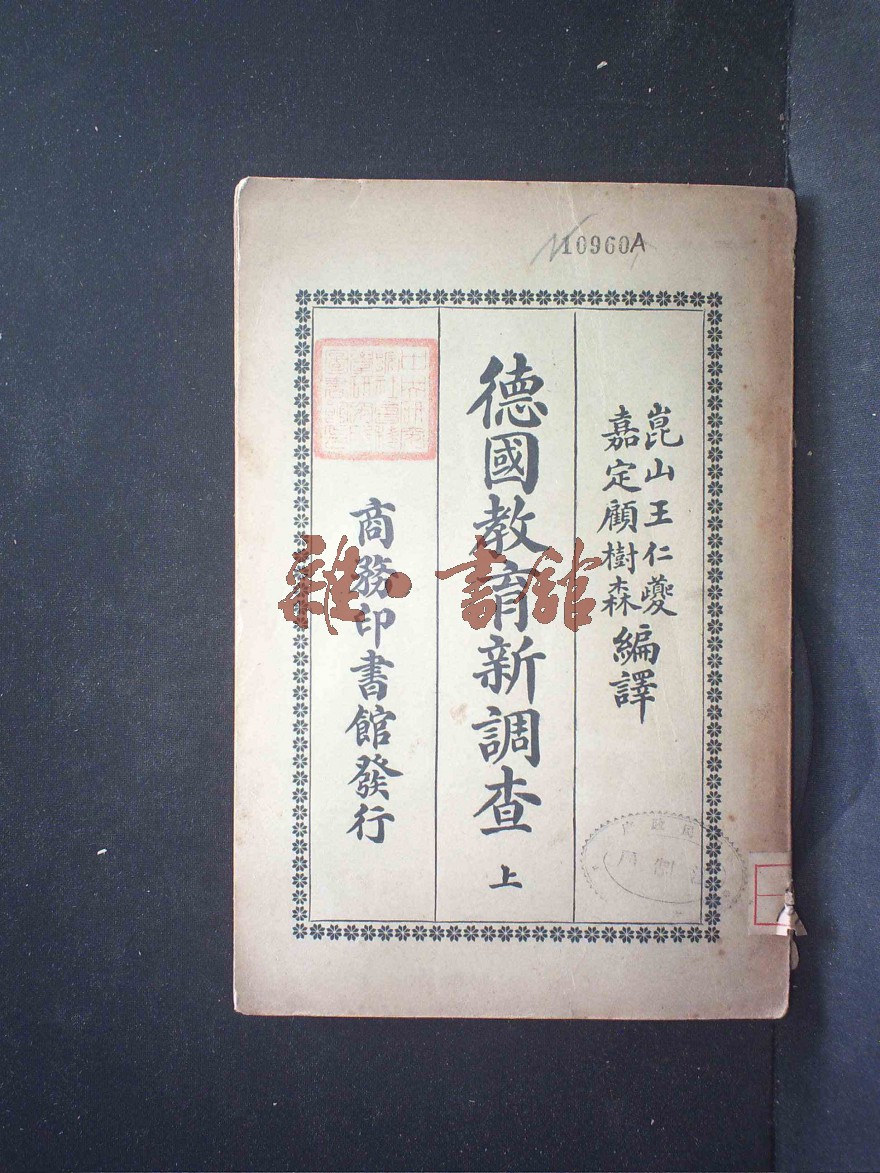 10960A
崑山王仁夔
嘉定顧樹森
編譯
德國教育新調查
上
商務印書館發行
雜·書館